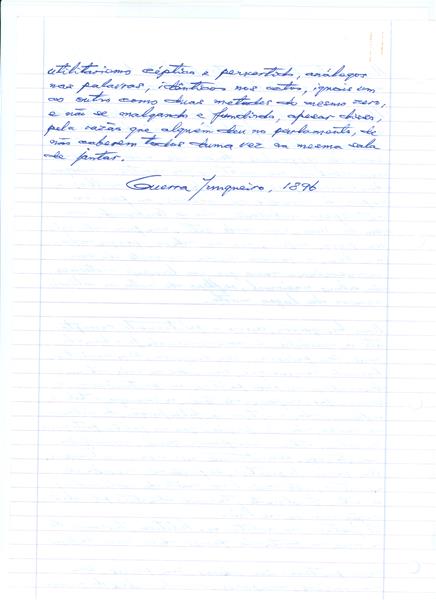 utilitarismo céptico e pervertido, análogos
nas palavras, idênticos nos actos, iguais um
ao outro como duas metades do mesmo zero,
e não se malgando e fundindo, apesar disso,
pela razão que alguém deu no parlamento, de
não caberem todos duma vez na mesma sala
de jantar.
Guerra Junqueiro, 1896